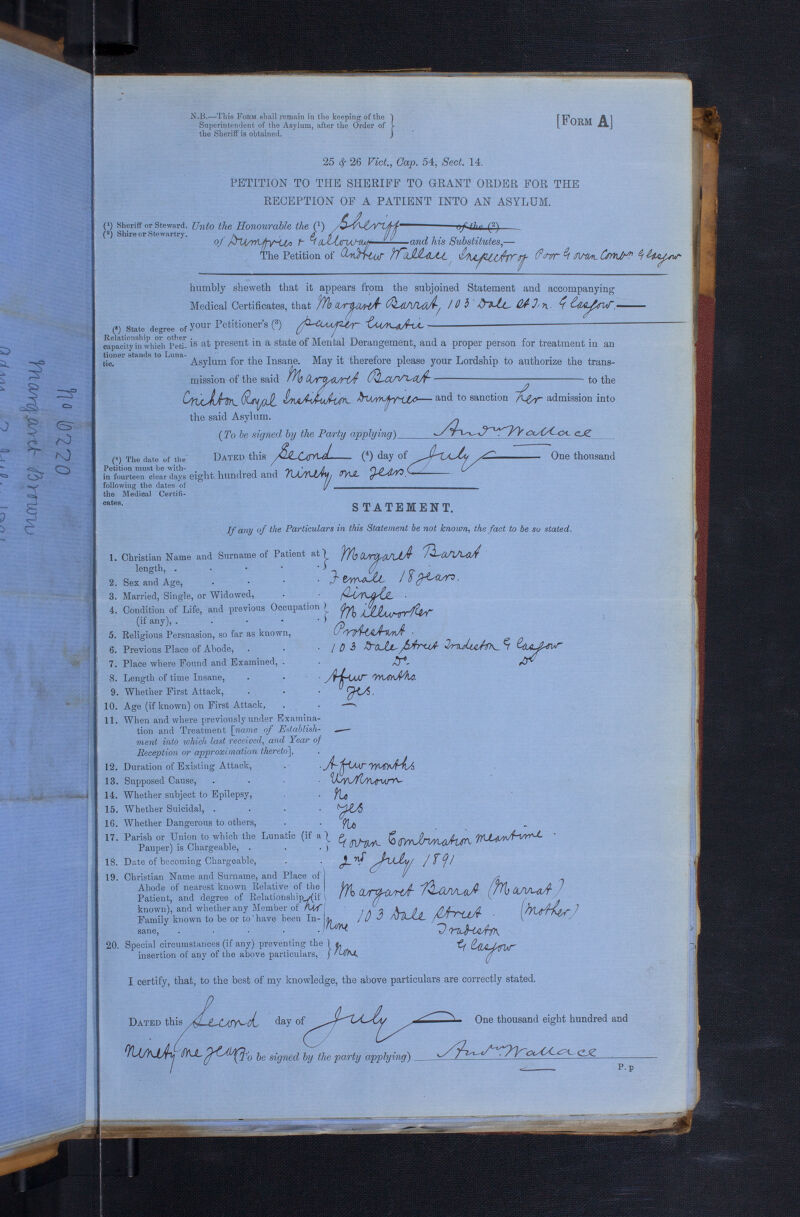 N.B.—This Form shall remain in the keeping of the
Superintendent of the Asylum, after the Order of
the Sheriff is obtained.
[Form A]
25 & 26 Vict., Cap. 54, Sect. 14.
PETITION TO THE SHERIFF TO GRANT ORDER FOR THE
RECEPTION OF A PATIENT INTO AN ASYLUM.
(¹) Sheriff or Steward.
(²) Shire or Stewartry.
Unto the Honourable the (¹) Sheriff of the (²)
of Dumfries & Galloway and his Substitutes,—
The Petition of Andrew Wallace, Inspector of Poor Govan Combn Glasgow
humbly sheweth that it appears from the subjoined Statement and accompanying
Medical Certificates, that Margaret Barrat, 103 Dale St Tn. Glasgow
(³) State degree of
Relationship or other
capacity in which Peti-
tioner stands to Luna-
tic.
your Petitioner's (³) pauper Lunatic
is at present in a state of Mental Derangement, and a proper person for treatment in an
Asylum for the Insane. May it therefore please your Lordship to authorize the trans-
mission of the said Margaret Barrat to the
Crichton Royal Institution Dumfries and to sanction her admission into
the said Asylum.
(To be signed by the Party applying) Andw. Wallace
(⁴) The date of the
Petition must be with-
in fourteen clear days
following the dates of
the Medical Certifi-
cates.
Dated this Second (⁴) day of July One thousand
eight hundred and ninety one years.
STATEMENT.
If any of the Particulars in this Statement be not known, the fact to be so stated.
1. Christian Name and Surname of Patient at
length, . Margaret Barrat
2. Sex and Age, Female 18 years.
3. Married, Single, or Widowed, Single.
4. Condition of Life, and previous Occupation
(if any), . Millworker
5. Religious Persuasion, so far as known, Protestant
6. Previous Place of Abode, 103 Dale Street Tradeston Glasgow
7. Place where Found and Examined, Do. Do
8. Length of time Insane, A few months
9. Whether First Attack, Yes.
10. Age (if known) on First Attack, —
11. When and where previously under Examina-
tion and Treatment [name of Establish-
ment into which last received, and Year of
Reception or approximation thereto], —
12. Duration of Existing Attack, A few months
13. Supposed Cause, Unknown
14. Whether subject to Epilepsy, No
15. Whether Suicidal, Yes
16. Whether Dangerous to others, No
17. Parish or Union to which the Lunatic (if a
Pauper) is Chargeable, Govan Combination meantime.
18. Date of becoming Chargeable, 2nd July 1891
19. Christian Name and Surname, and Place of
Abode of nearest known Relative of the
Patient, and degree of Relationship (if
known), and whether any Member of her
Family known to be or to have been In-
sane,
Margaret Barrat (Marrat)
103 Dale Street. (Mother)
None Tradeston
Glasgow
20. Special circumstances (if any) preventing the
insertion of any of the above particulars, None
I certify, that, to the best of my knowledge, the above particulars are correctly stated.
Dated this Second day of July One thousand eight hundred and
ninety one years
(To be signed by the party applying) Andw. Wallace
P. p
No 6220
Margaret Brown